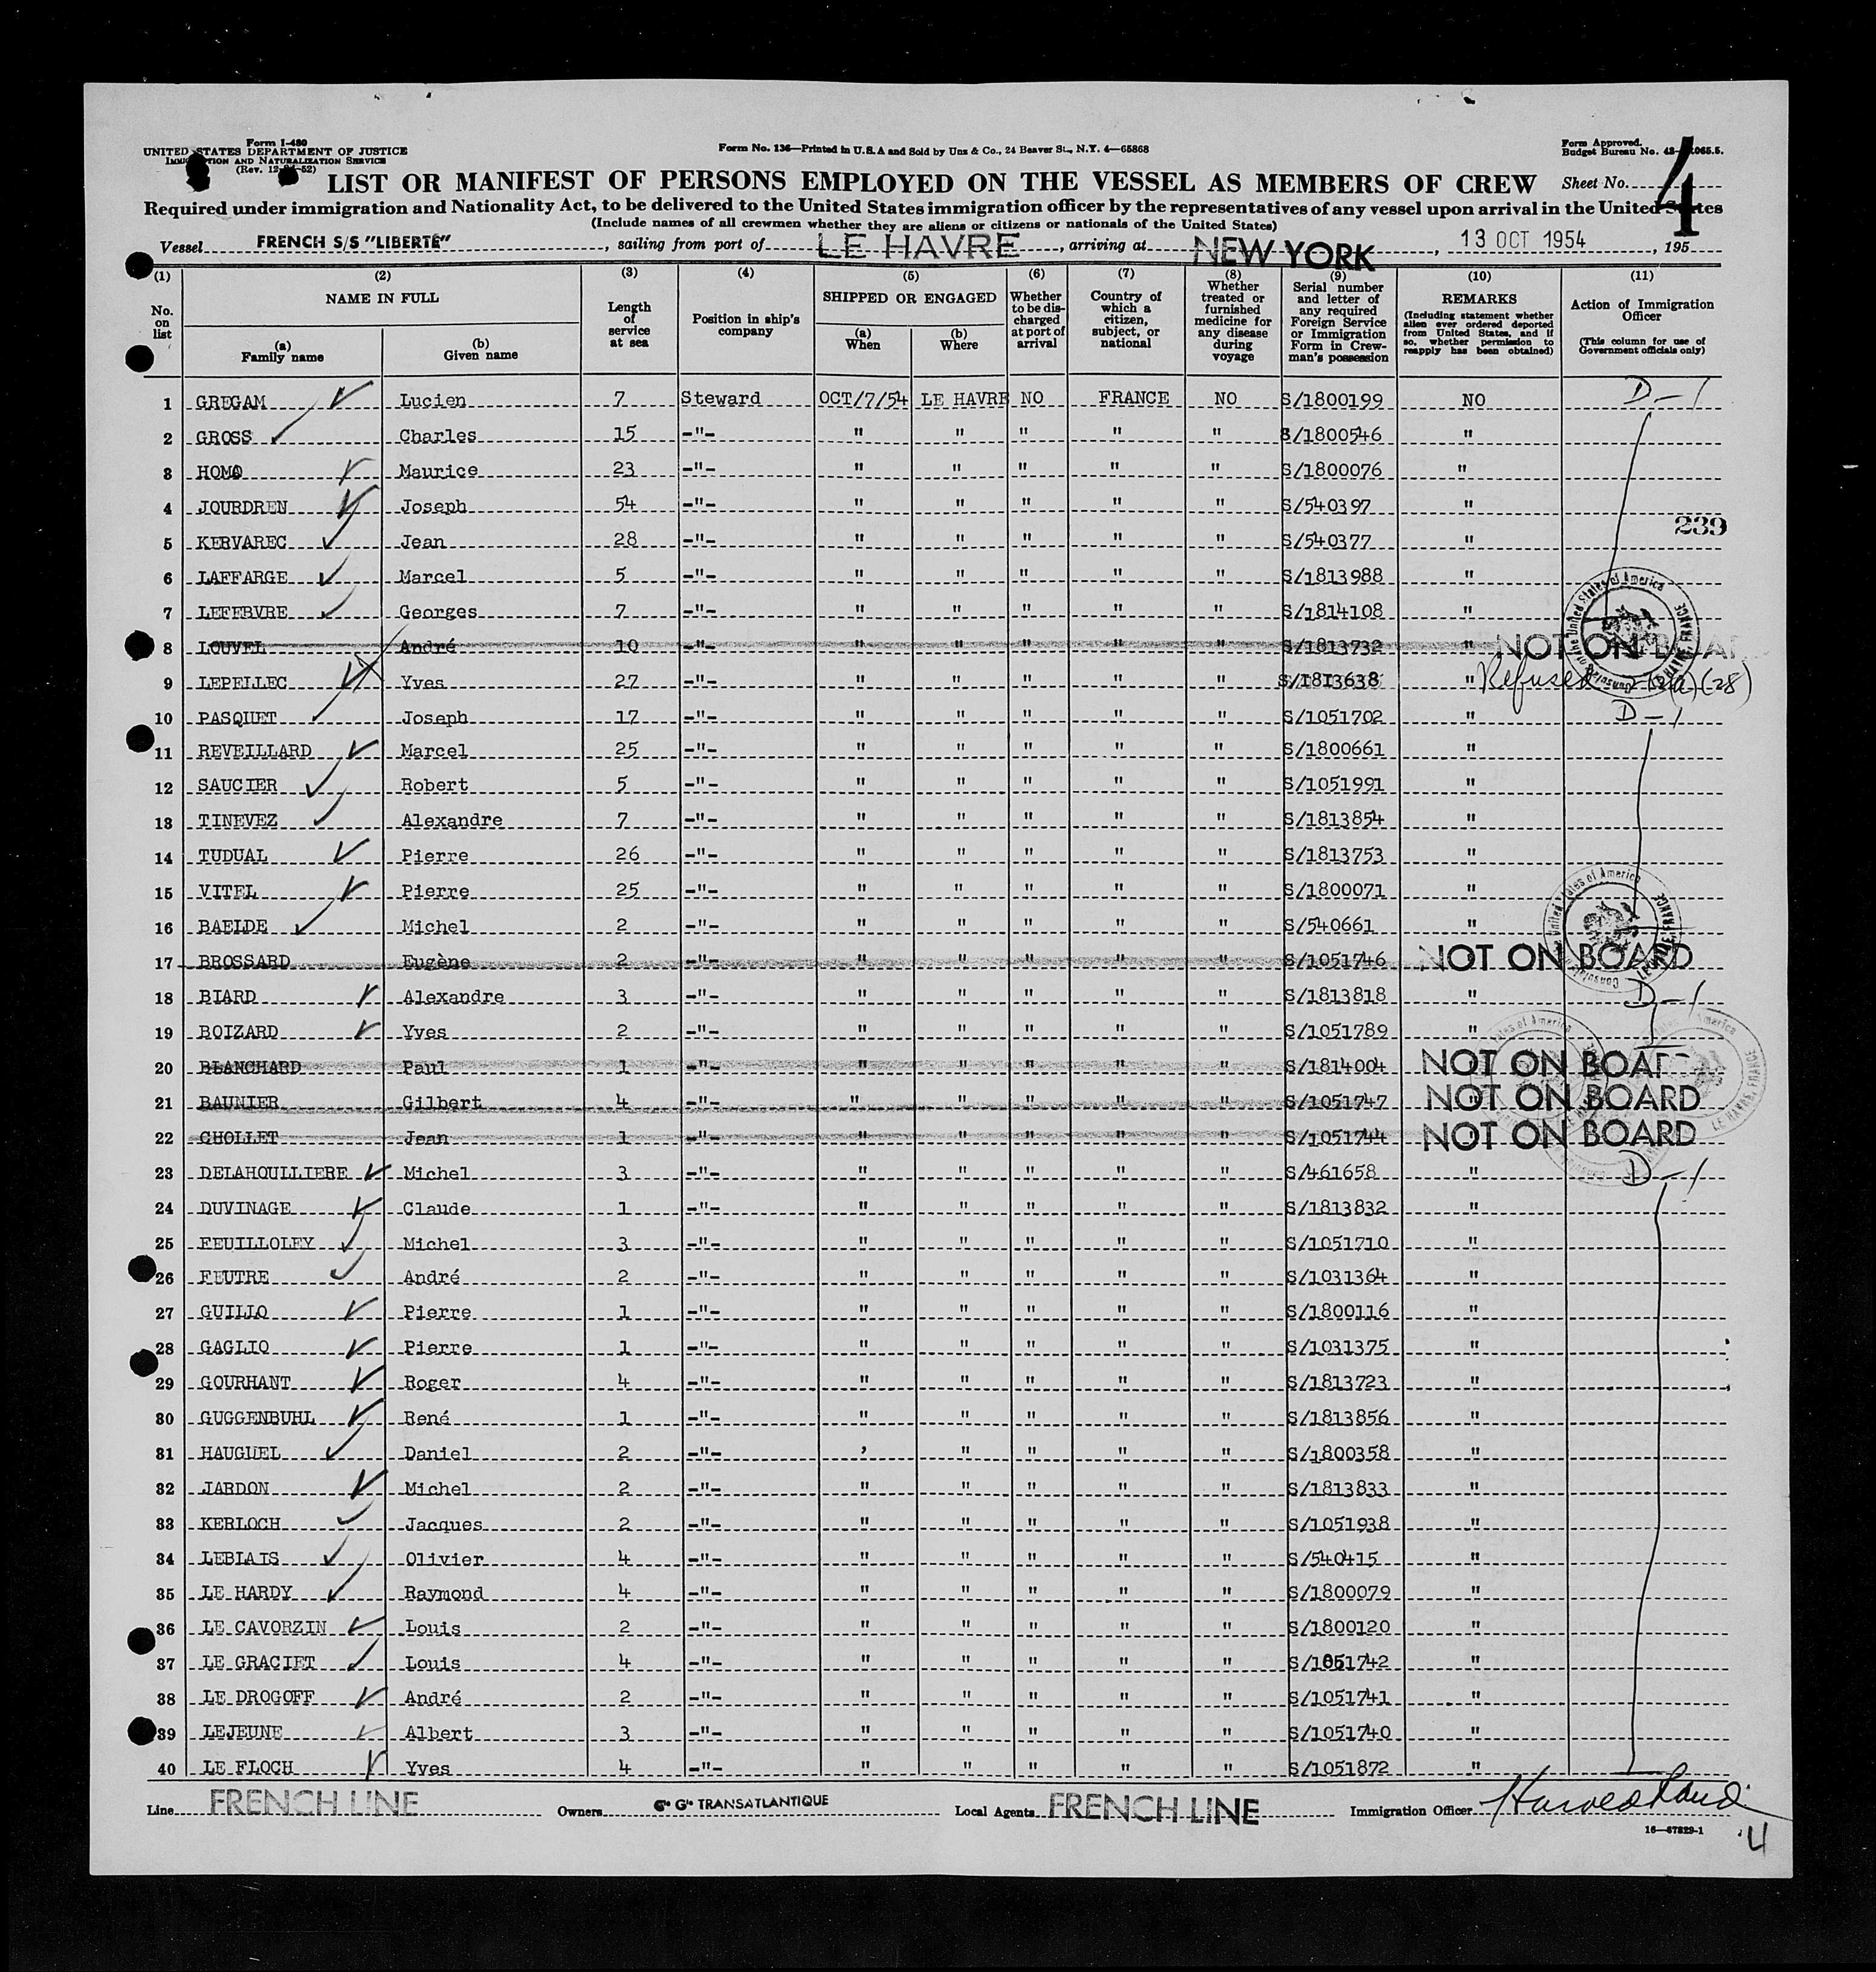 Form I-480
UNITED STATES DEPARTMENT OF JUSTICE
IMMIGRATION AND NATURALIZATION SERVICE
(Rev. 12- -52)
Form No. 136—Printed in U.S.A and Sold by Unz & Co., 24 Beaver St., N.Y. 4—65868
Form Approved.
Budget Bureau No. 43- 065.5.
LIST OR MANIFEST OF PERSONS EMPLOYED ON THE VESSEL AS MEMBERS OF CREW Sheet No. 4
Required under immigration and Nationality Act, to be delivered to the United States immigration officer by the representatives of any vessel upon arrival in the United States
(Include names of all crewmen whether they are aliens or citizens or nationals of the United States)
Vessel FRENCH S/S "LIBERTÉ", sailing from port of LE HAVRE, arriving at NEW YORK, 13 OCT 1954, 195
(1) (2) (3) (4) (5) (6) (7) (8) (9) (10) (11)
No. on list
NAME IN FULL
(a) Family name
(b) Given name
Length of service at sea
Position in ship's company
SHIPPED OR ENGAGED
(a) When
(b) Where
Whether to be discharged at port of arrival
Country of which a citizen, subject, or national
Whether treated or furnished medicine for any disease during voyage
Serial number and letter of any required Foreign Service or Immigration Form in Crewman's possession
REMARKS
(Including statement whether alien ever ordered deported from United States, and if so, whether permission to reapply has been obtained)
Action of Immigration Officer
(This column for use of Government officials only)
1 GREGAM Lucien 7 Steward OCT/7/54 LE HAVRE NO FRANCE NO S/1800199 NO D-1
2 GROSS Charles 15 -"- " " " " " S/1800546 "
3 HOMO Maurice 23 -"- " " " " " S/1800076 "
4 JOURDREN Joseph 54 -"- " " " " " S/540397 "
239
5 KERVAREC Jean 28 -"- " " " " " S/540377 "
6 LAFFARGE Marcel 5 -"- " " " " " S/1813988 "
7 LEFEBVRE Georges 7 -"- " " " " " S/1814108 "
8 LOUVEL André 10 -"- " " " " " S/1813732 " NOT ON BOARD
9 LEPELLEC Yves 27 -"- " " " " " S/1813638 " Refused (a)(28)
10 PASQUET Joseph 17 -"- " " " " " S/1051702 " D-1
11 REVEILLARD Marcel 25 -"- " " " " " S/1800661 "
12 SAUCIER Robert 5 -"- " " " " " S/1051991 "
13 TINEVEZ Alexandre 7 -"- " " " " " S/1813854 "
14 TUDUAL Pierre 26 -"- " " " " " S/1813753 "
15 VITEL Pierre 25 -"- " " " " " S/1800071 "
16 BAELDE Michel 2 -"- " " " " " S/540661 "
17 BROSSARD Eugène 2 -"- " " " " " S/1051746 NOT ON BOARD
18 BIARD Alexandre 3 -"- " " " " " S/1813818 " D-1
19 BOIZARD Yves 2 -"- " " " " " S/1051789 "
20 BLANCHARD Paul 1 -"- " " " " " S/1814004 NOT ON BOARD
21 BAUNIER Gilbert 4 -"- " " " " " S/1051747 " NOT ON BOARD
22 CHOLLET Jean 1 -"- " " " " " S/1051744 " NOT ON BOARD
23 DELAHOULLIERE Michel 3 -"- " " " " " S/461658 " D-1
24 DUVINAGE Claude 1 -"- " " " " " S/1813832 "
25 FEUILLOLEY Michel 3 -"- " " " " " S/1051710 "
26 FEUTRE André 2 -"- " " " " " S/1031364 "
27 GUILLO Pierre 1 -"- " " " " " S/1800116 "
28 GAGLIO Pierre 1 -"- " " " " " S/1031375 "
29 GOURHANT Roger 4 -"- " " " " " S/1813723 "
30 GUGGENBUHL René 1 -"- " " " " " S/1813856 "
31 HAUGUEL Daniel 2 -"- ' " " " " S/1800358 "
32 JARDON Michel 2 -"- " " " " " S/1813833 "
33 KERLOCH Jacques 2 -"- " " " " " S/1051938 "
34 LEBLAIS Olivier 4 -"- " " " " " S/540415 "
35 LE HARDY Raymond 4 -"- " " " " " S/1800079 "
36 LE CAVORZIN Louis 2 -"- " " " " " S/1800120 "
37 LE GRACIET Louis 4 -"- " " " " " S/1051742 "
38 LE DROGOFF André 2 -"- " " " " " S/1051741 "
39 LEJEUNE Albert 3 -"- " " " " " S/1051740 "
40 LE FLOCH Yves 4 -"- " " " " " S/1051872 "
Line FRENCH LINE Owners Cie Gle TRANSATLANTIQUE Local Agents FRENCH LINE Immigration Officer
16—67829-1
4